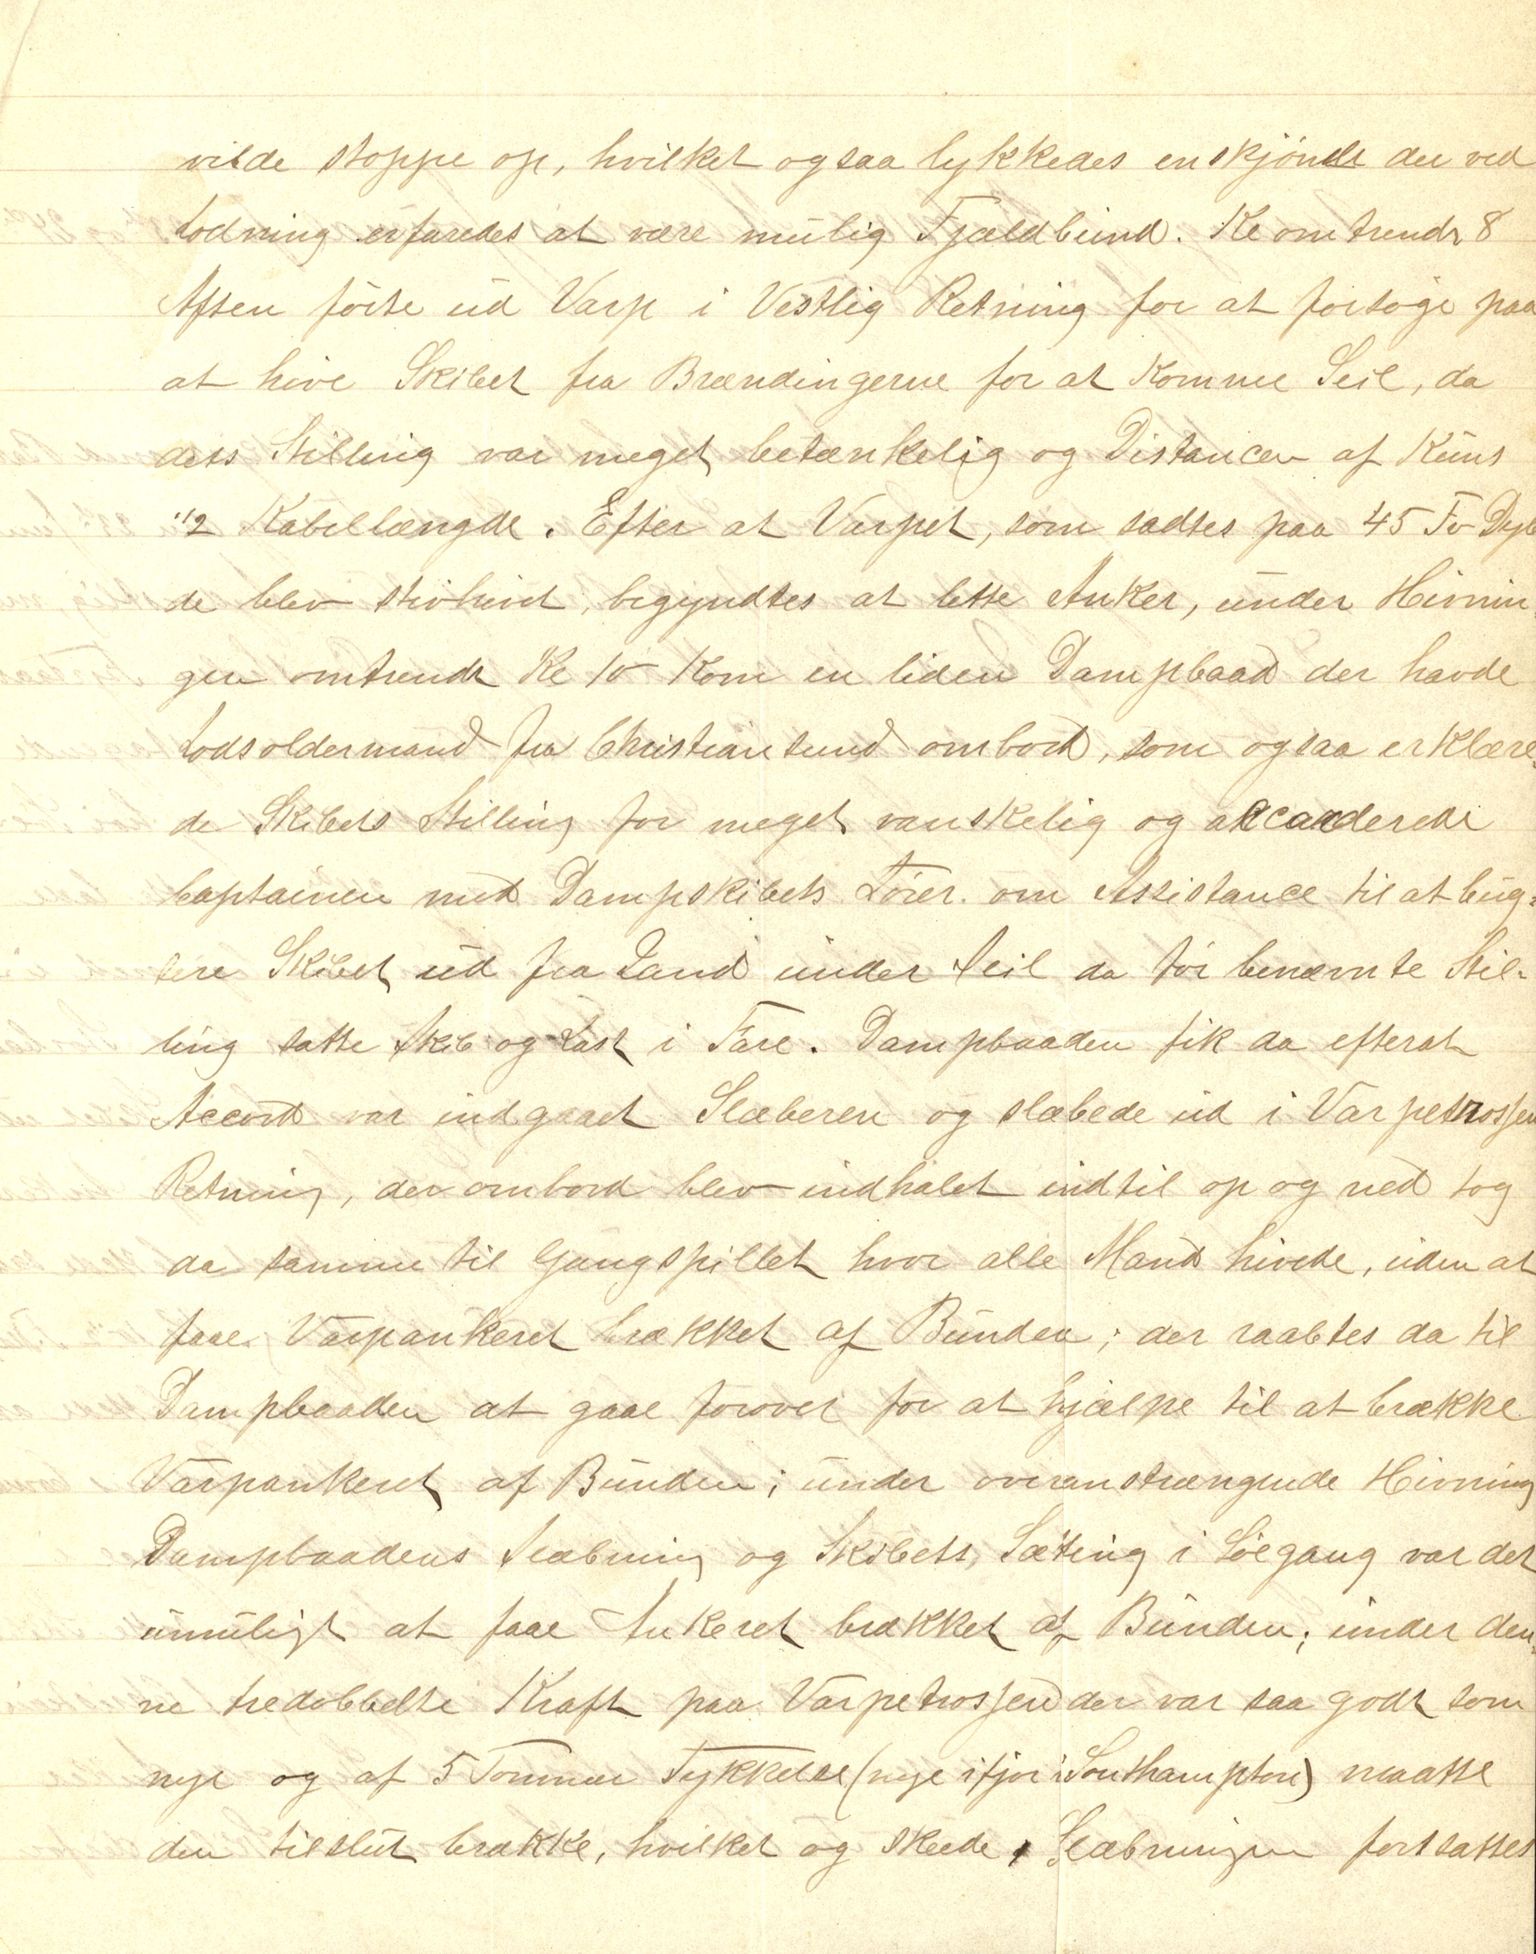 vilde stoppe op, hvilket ogsaa lykkedes enskjöndt der ved
Lodning erfaredes at være mulig Fjældbund. Kl omtrendt 8
Aften förte ud Varp i Vestlig Retning for at forsöge paa
at hive Skibet fra Brændingerne for at komme Seil, da
dets Stilling var meget betænkelig og Distancen af Kuns
1/2 Kabellængde. Efter at Varpet, som sadtes paa 45 Fv Dyb
de blev stivhivet, begyndtes at lette Anker, under Hivnin-
gen omtrendt Kl 10 kom en liden Dampbaad der havde
Lodsoldermand fra Christiansund ombord, som ogsaa erklære-
de Skibets Stilling for meget vanskelig og accorderede
Captainen med Dampskibets Förer om Assistance til at bug-
sere Skibet ud fra Land under Seil da för benævnte Stil-
ling satte Skib og Last i Fare. Dampbaaden fik da efterat
Accord var indgaaet Slæberen og slæbede ud i Varpetrossen
Retning, der ombord blev indhalet indtil op og ned tog
da samme til Gangspillet hvor alle Mand hivede, uden at
faae Varpankeret brækket af Bunden; der raabtes da til
Dampbaaden at gaae forover for at hjælpe til at brække
Varpankeret af Bunden; under overanstrængende Hivning
Dampbaadens Slæbning og Skibets Sætning i Söegang var det
umuligt at faae Ankeret brækket af Bunden; under den-
ne tredobbelte Kraft paa Varpetrossen der var saa godt som
nye og af 5 Tommer Tykkelse (nye ifjor i Southampton) maatte
den tilslut brække, hvilket og skeede, Slæbningen fortsattes